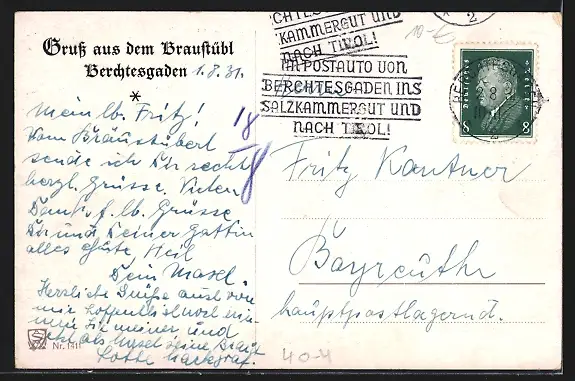 Gruß aus dem Braustübl
Berchtesgaden 1.8.31.
*
Mein lb. Fritz!
Vom Bräustüberl
sende ich Dir recht
herzl. Grüsse. Vielen
Dank f. lb. Grüsse
Dir und Deiner Gattin
alles Gute Heil
Dein
Herzliche Grüße auch von
mir hoffentlich
Sie meiner und
Lotte Markgraf.
Nr. 1411
18
8
BERCHTESGADEN INS
SALZKAMMERGUT UND
NACH TIROL!
IM POSTAUTO VON
BERCHTESGADEN INS
SALZKAMMERGUT UND
NACH TIROL!
2
Deutsches Reich
8 8
2.8
2
Fritz Kantner
Bayreuth
hauptpostlagernd.
40-4